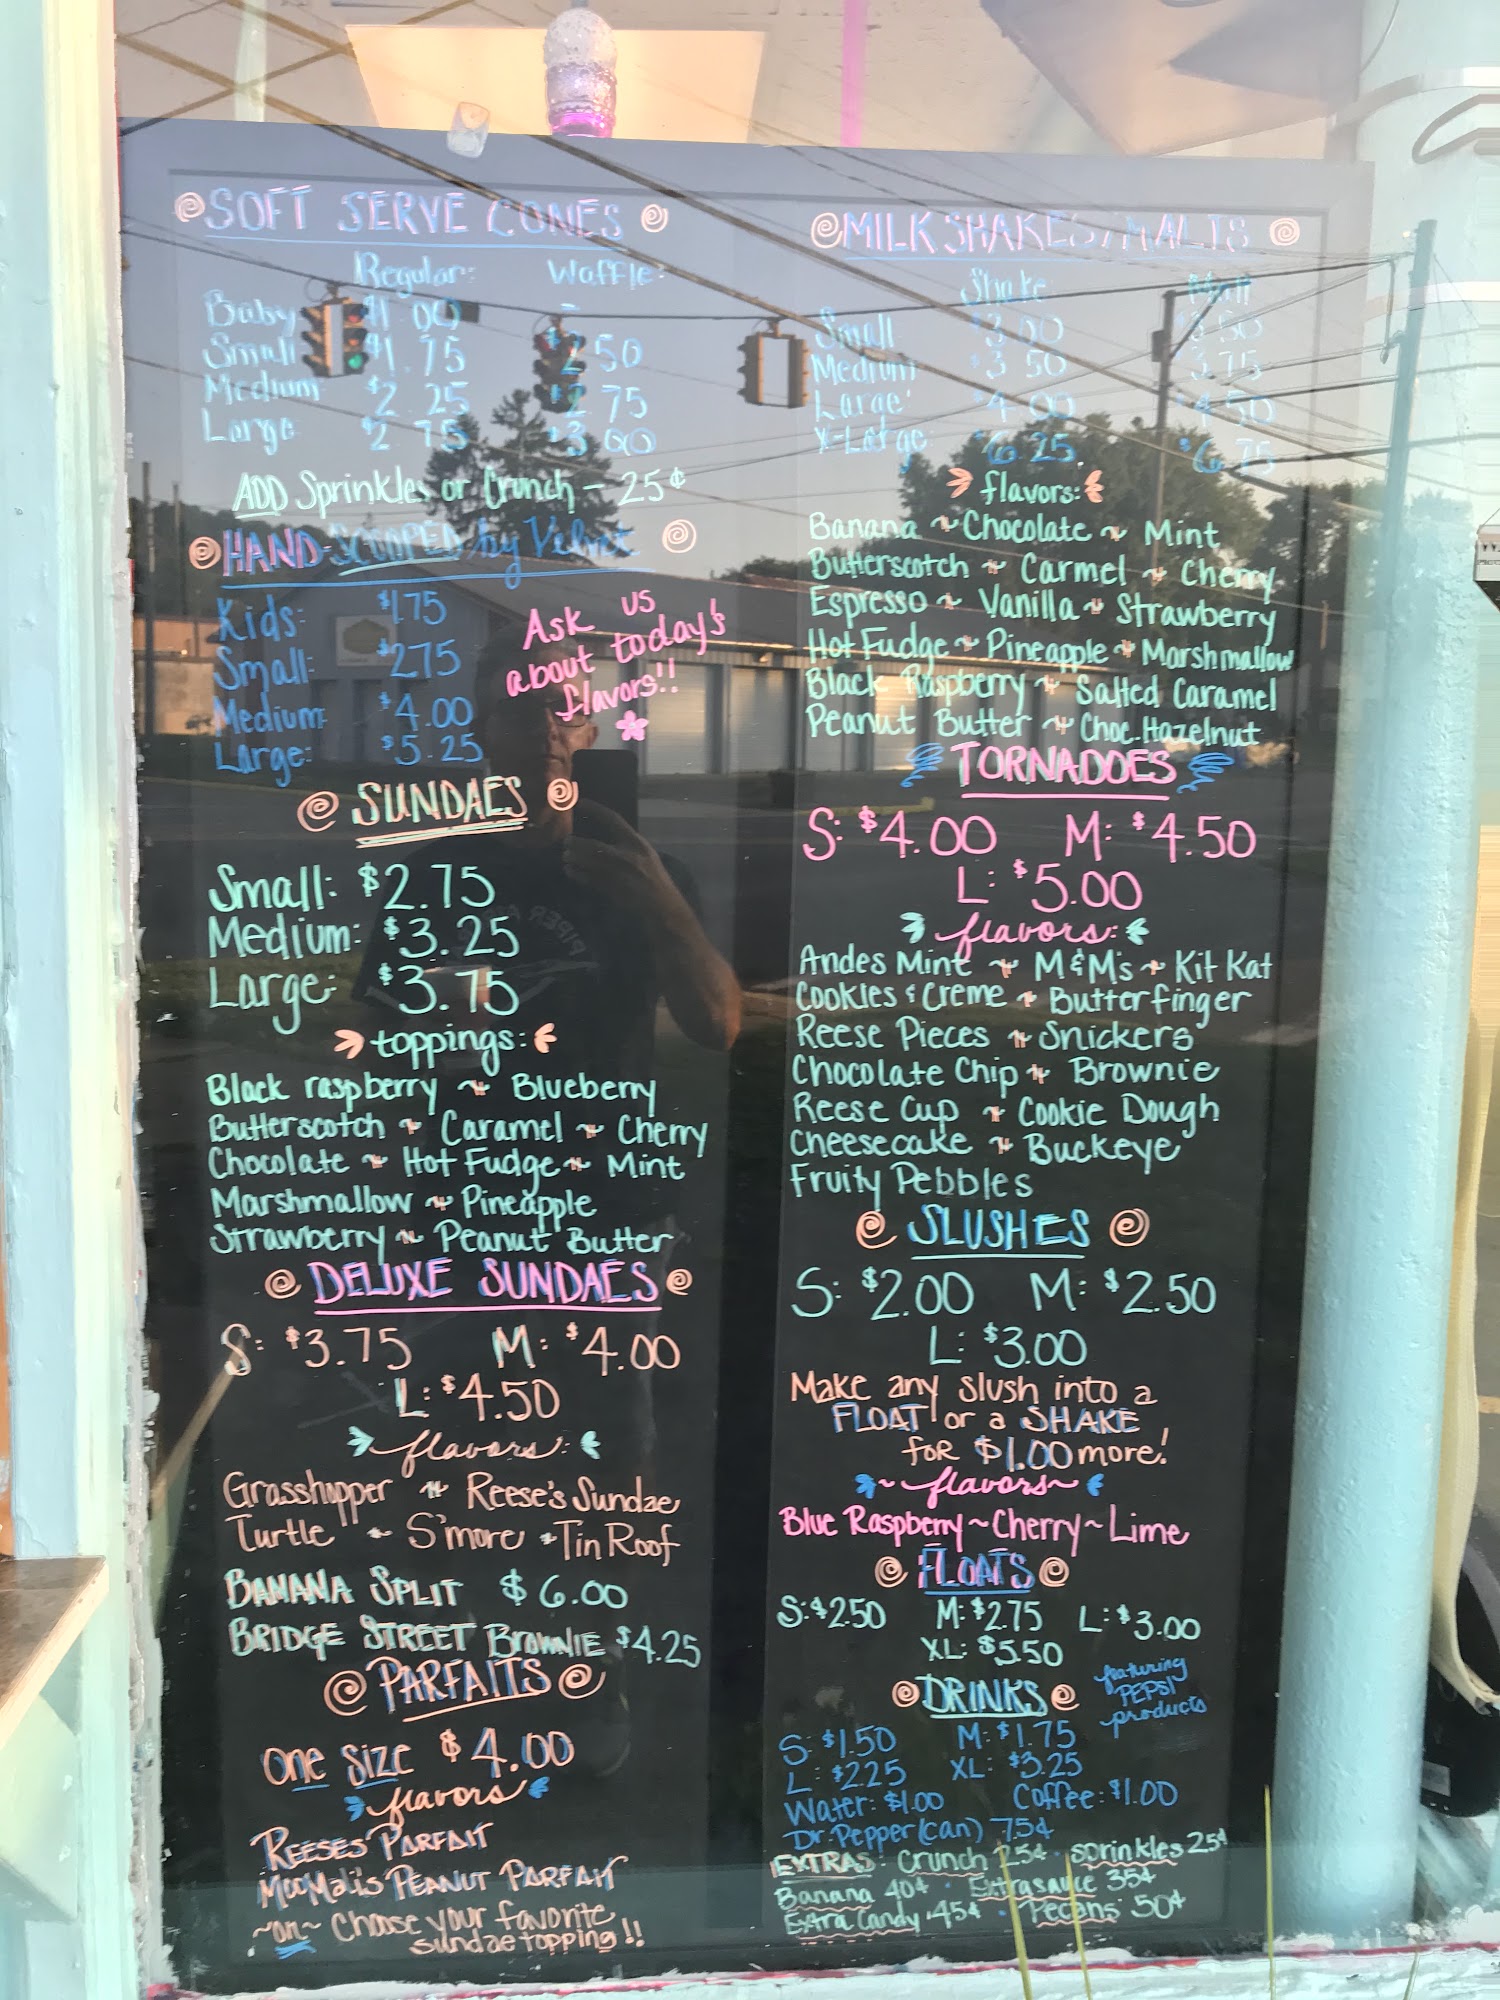 SOFT SERVE CONES
Regular: Waffle:
Baby $1.00 -
Small $1.75 $2.50
Medium $2.25 $2.75
Large $2.75 $3.00
ADD Sprinkles or Crunch - 25¢
HAND-SCOOPED by Velvet
Kids: $1.75
Small: $2.75
Medium: $4.00
Large: $5.25
Ask us
about today's
flavors!!
SUNDAES
Small: $2.75
Medium: $3.25
Large: $3.75
toppings:
Black raspberry ~ Blueberry
Butterscotch ~ Caramel ~ Cherry
Chocolate ~ Hot Fudge ~ Mint
Marshmallow ~ Pineapple
Strawberry ~ Peanut Butter
DELUXE SUNDAES
S: $3.75 M: $4.00
L: $4.50
flavors:
Grasshopper ~ Reese's Sundae
Turtle ~ S'more ~ Tin Roof
BANANA SPLIT $6.00
BRIDGE STREET BROWNIE $4.25
PARFAITS
ONE SIZE $4.00
flavors
REESES' PARFAIT
PEANUT PARFAIT
~or~ Choose your favorite
sundae topping!!
MILKSHAKES/MALTS
Shake Malt
Small $3.00 $3.50
Medium $3.50 3.75
Large $4.00 $4.50
X-Large $6.25 $6.75
flavors:
Banana ~ Chocolate ~ Mint
Butterscotch ~ Carmel ~ Cherry
Espresso ~ Vanilla ~ Strawberry
Hot Fudge ~ Pineapple ~ Marshmallow
Black Raspberry ~ Salted Caramel
Peanut Butter ~ Choc. Hazelnut
TORNADOES
S: $4.00 M: $4.50
L: $5.00
flavors:
Andes Mint ~ M&M's ~ Kit Kat
Cookies & Creme ~ Butterfinger
Reese Pieces ~ Snickers
Chocolate Chip ~ Brownie
Reese Cup ~ Cookie Dough
Cheesecake ~ Buckeye
Fruity Pebbles
SLUSHES
S: $2.00 M: $2.50
L: $3.00
Make any slush into a
FLOAT or a SHAKE
for $1.00 more!
~flavors~
Blue Raspberry ~ Cherry ~ Lime
FLOATS
S: $2.50 M: $2.75 L: $3.00
XL: $5.50
DRINKS
featuring
PEPSI
products
S: $1.50 M: $1.75
L: $2.25 XL: $3.25
Water: $1.00 Coffee: $1.00
Dr. Pepper (can) 75¢
EXTRAS: Crunch 25¢ · sprinkles 25¢
Banana 40¢ · Extra sauce 35¢
Extra Candy 45¢ · Pecans 50¢